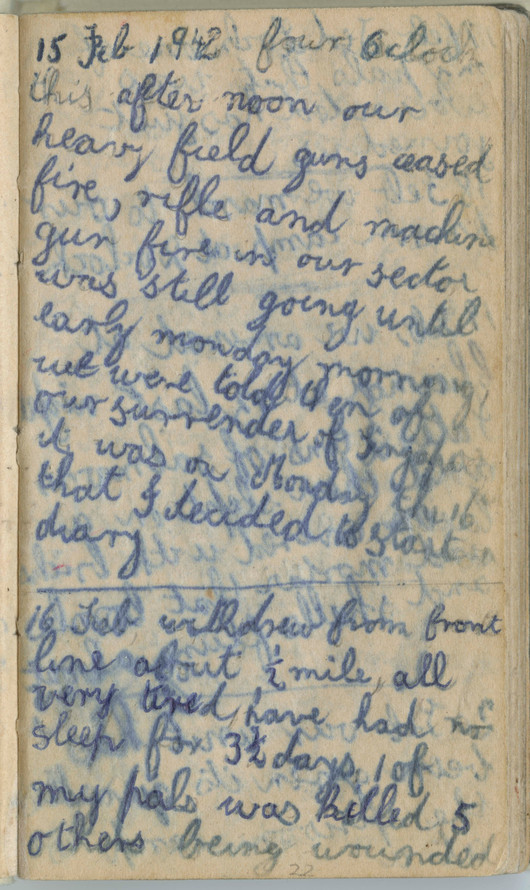 15 Feb 1942 four Oclock
this after noon our
heavy field guns ceased
fire, rifle and machine
gun fire in our sector
was still going until
early monday morning,
we were told then of
our surrender of Singapore
it was on Monday the 16
that I decided to start a
diary
16 Feb withdrew from front
line about ½ mile, all
very tired, have had no
sleep for 3½ days, 1 of
my pals was killed, 5
others being wounded
22